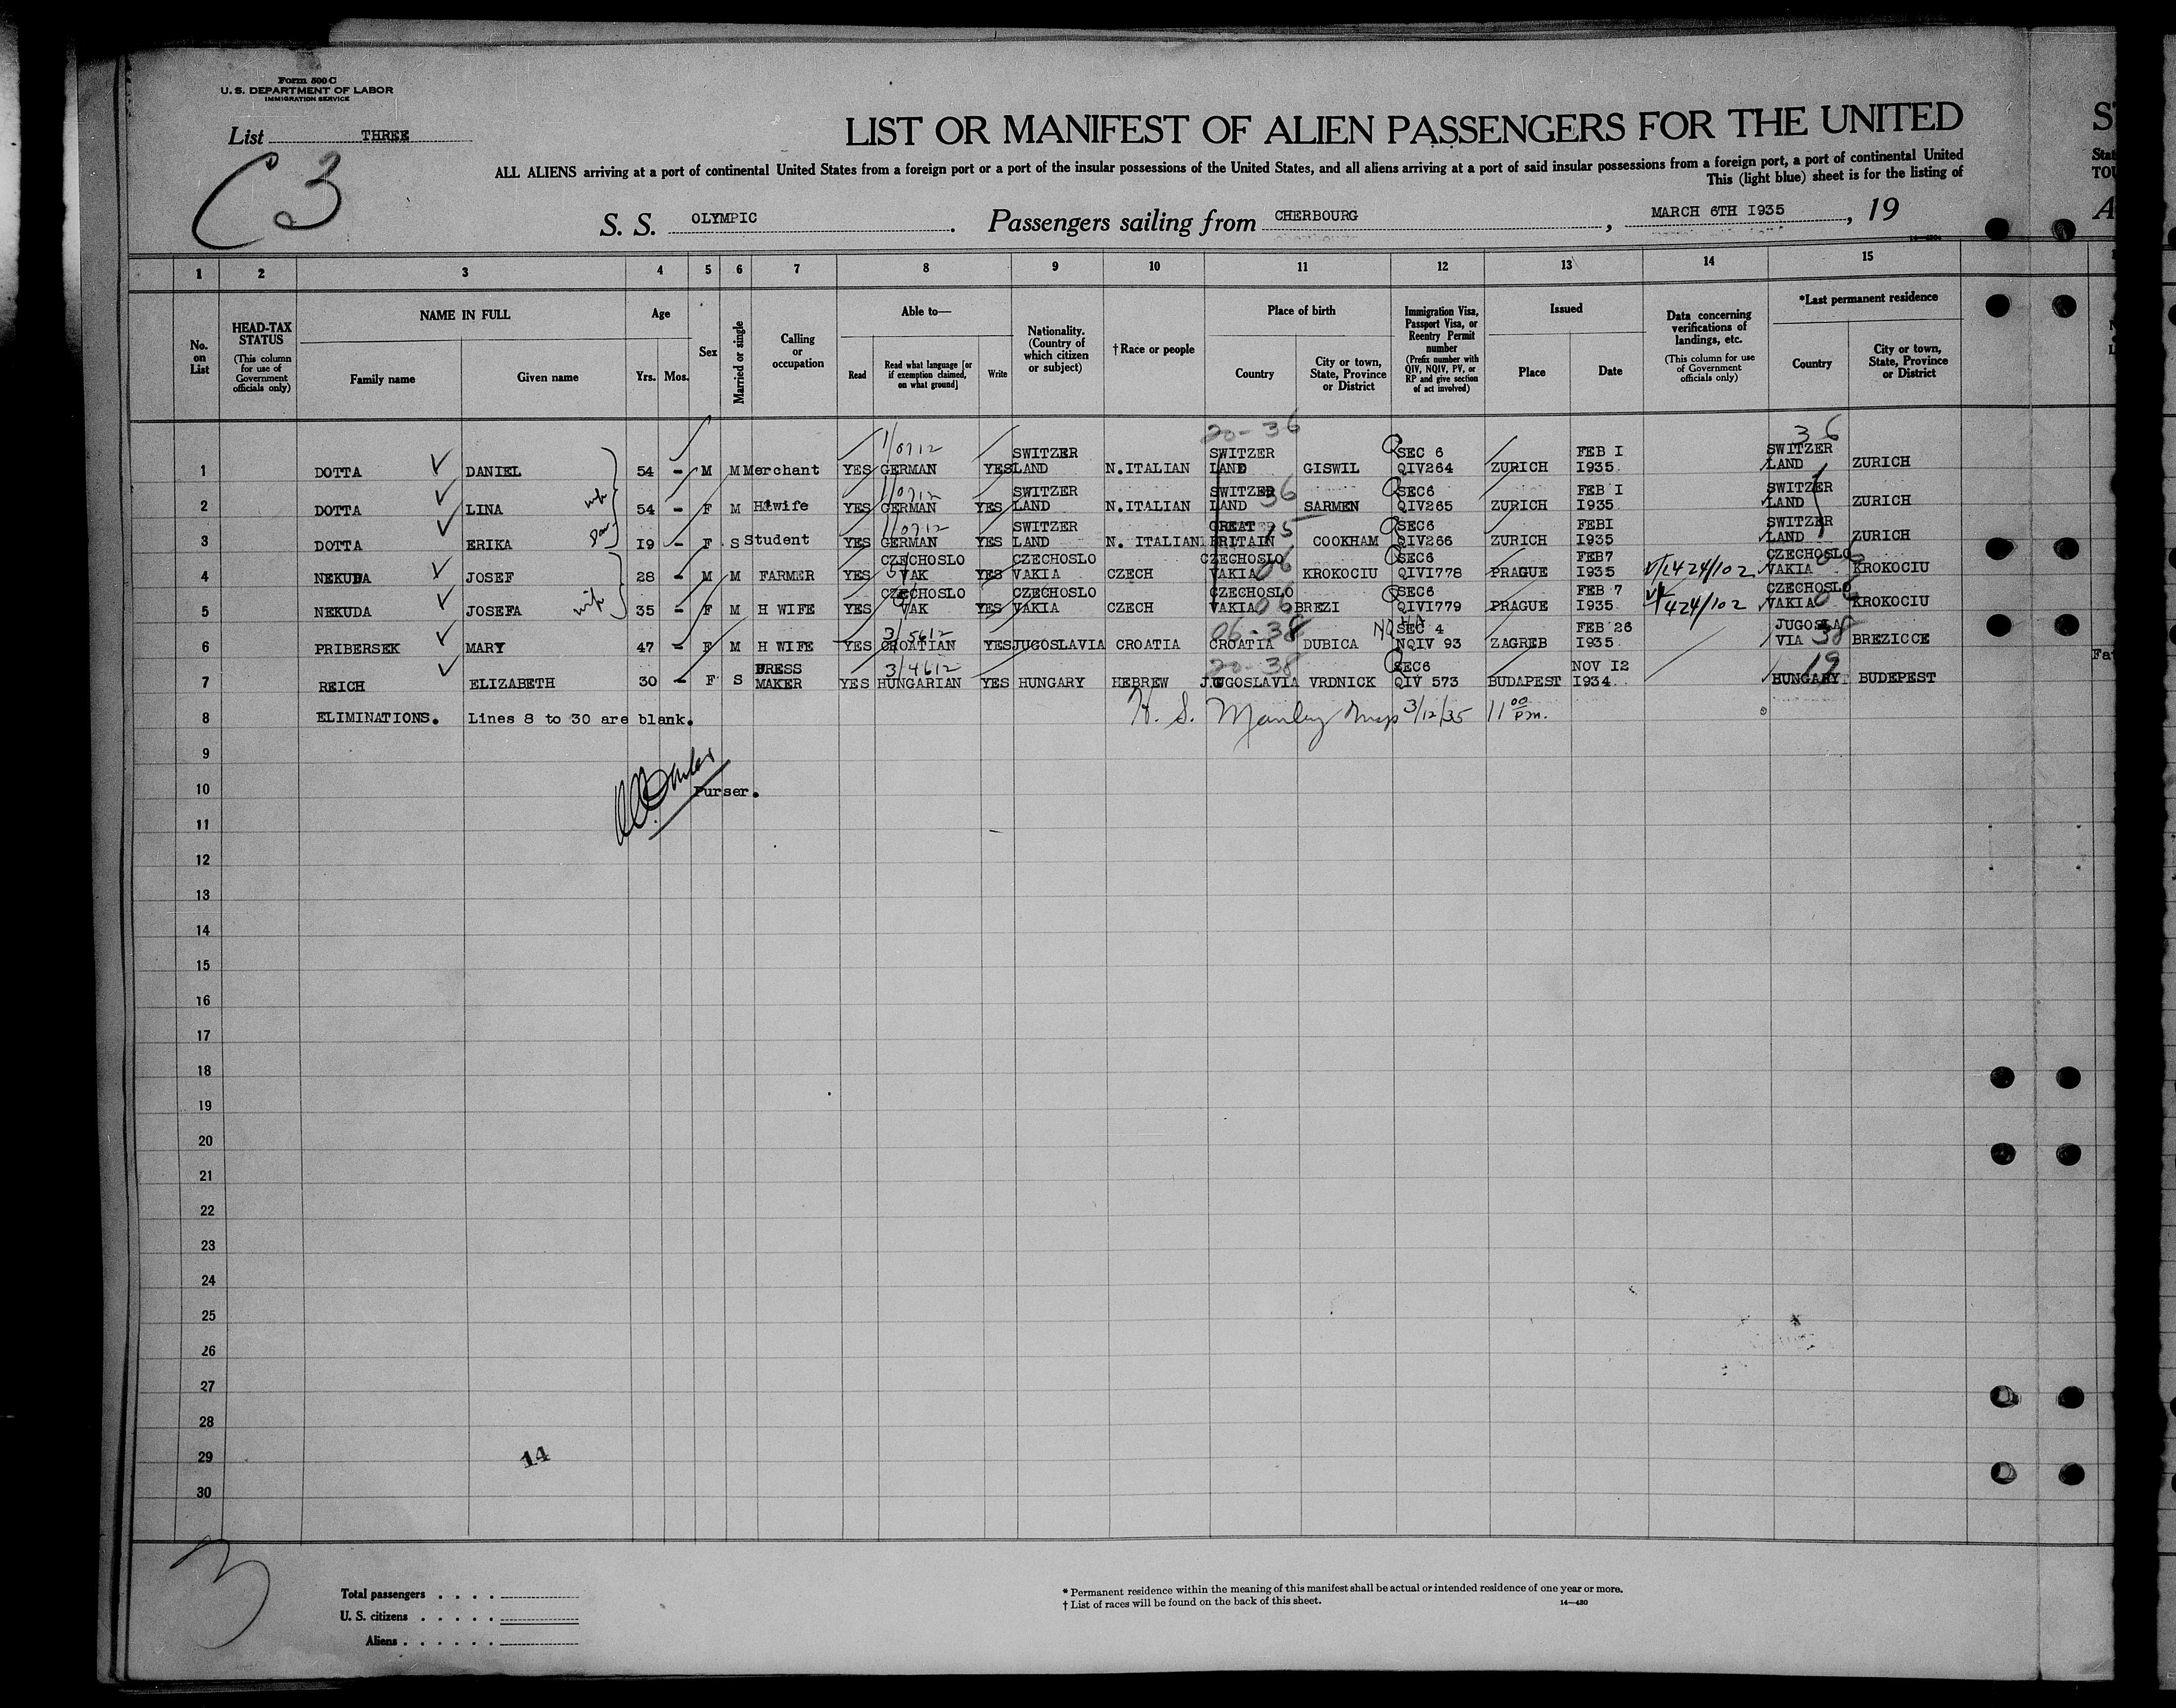 Form 500 C
U. S. DEPARTMENT OF LABOR
IMMIGRATION SERVICE
List THREE
C3
LIST OR MANIFEST OF ALIEN PASSENGERS FOR THE UNITED
ALL ALIENS arriving at a port of continental United States from a foreign port or a port of the insular possessions of the United States, and all aliens arriving at a port of said insular possessions from a foreign port, a port of continental United
This (light blue) sheet is for the listing of
S. S. OLYMPIC. Passengers sailing from CHERBOURG, MARCH 6TH I935, 19
1 2 3 4 5 6 7 8 9 10 11 12 13 14 15
No. on List
HEAD-TAX STATUS (This column for use of Government officials only)
NAME IN FULL
Family name
Given name
Age
Yrs. Mos.
Sex
Married or single
Calling or occupation
Able to—
Read
Read what language [or if exemption claimed, on what ground]
Write
Nationality. (Country of which citizen or subject)
†Race or people
Place of birth
Country
City or town, State, Province or District
Immigration Visa, Passport Visa, or Reentry Permit number (Prefix number with QIV, NQIV, PV, or RP and give section of act involved)
Issued
Place
Date
Data concerning verifications of landings, etc. (This column for use of Government officials only)
*Last permanent residence
Country
City or town, State, Province or District
20-36 36
1 DOTTA DANIEL 54 - M M Merchant YES GERMAN YES SWITZER LAND N.ITALIAN SWITZER LAND GISWIL SEC 6 QIV264 ZURICH FEB I I935 SWITZER LAND ZURICH
2 DOTTA LINA wife 54 - F M H wife YES GERMAN YES SWITZER LAND N.ITALIAN SWITZER LAND 36 SARMEN SEC6 QIV265 ZURICH FEB I I935 SWITZER LAND ZURICH
3 DOTTA ERIKA I9 - F S Student YES GERMAN YES SWITZER LAND N. ITALIAN GREAT BRITAIN 15 COOKHAM SEC6 QIV266 ZURICH FEBI I935 SWITZER LAND ZURICH
4 NEKUDA JOSEF 28 - M M FARMER YES CZECHOSLO VAK YES CZECHOSLO VAKIA CZECH CZECHOSLO VAKIA 06 KROKOCIU SEC6 QIVI778 PRAGUE FEB7 I935 424/102 CZECHOSLO VAKIA KROKOCIU
5 NEKUDA JOSEFA wife 35 - F M H WIFE YES CZECHOSLO VAK YES CZECHOSLO VAKIA CZECH CZECHOSLO VAKIA 06 BREZI SEC6 QIVI779 PRAGUE FEB 7 I935 424/102 CZECHOSLO VAKIA KROKOCIU
6 PRIBERSEK MARY 47 - F M H WIFE YES CROATIAN YES JUGOSLAVIA CROATIA 06-38 CROATIA DUBICA SEC 4 NQIV 93 ZAGREB FEB 26 I935 JUGOSLA VIA 38 BREZICCE
7 REICH ELIZABETH 30 - F S DRESS MAKER YES HUNGARIAN YES HUNGARY HEBREW 20-38 JUGOSLAVIA VRDNICK SEC6 QIV 573 BUDAPEST NOV I2 I934 19 HUNGARY BUDEPEST
8 ELIMINATIONS. Lines 8 to 30 are blank. H. S. Manley Insp 3/12/35 11 00 P.m.
9
10 Purser.
11
12
13
14
15
16
17
18
19
20
21
22
23
24
25
26
27
28
29 14
30
3
Total passengers . . . .
U. S. citizens . . . . .
Aliens . . . . . .
* Permanent residence within the meaning of this manifest shall be actual or intended residence of one year or more.
† List of races will be found on the back of this sheet.
14—430